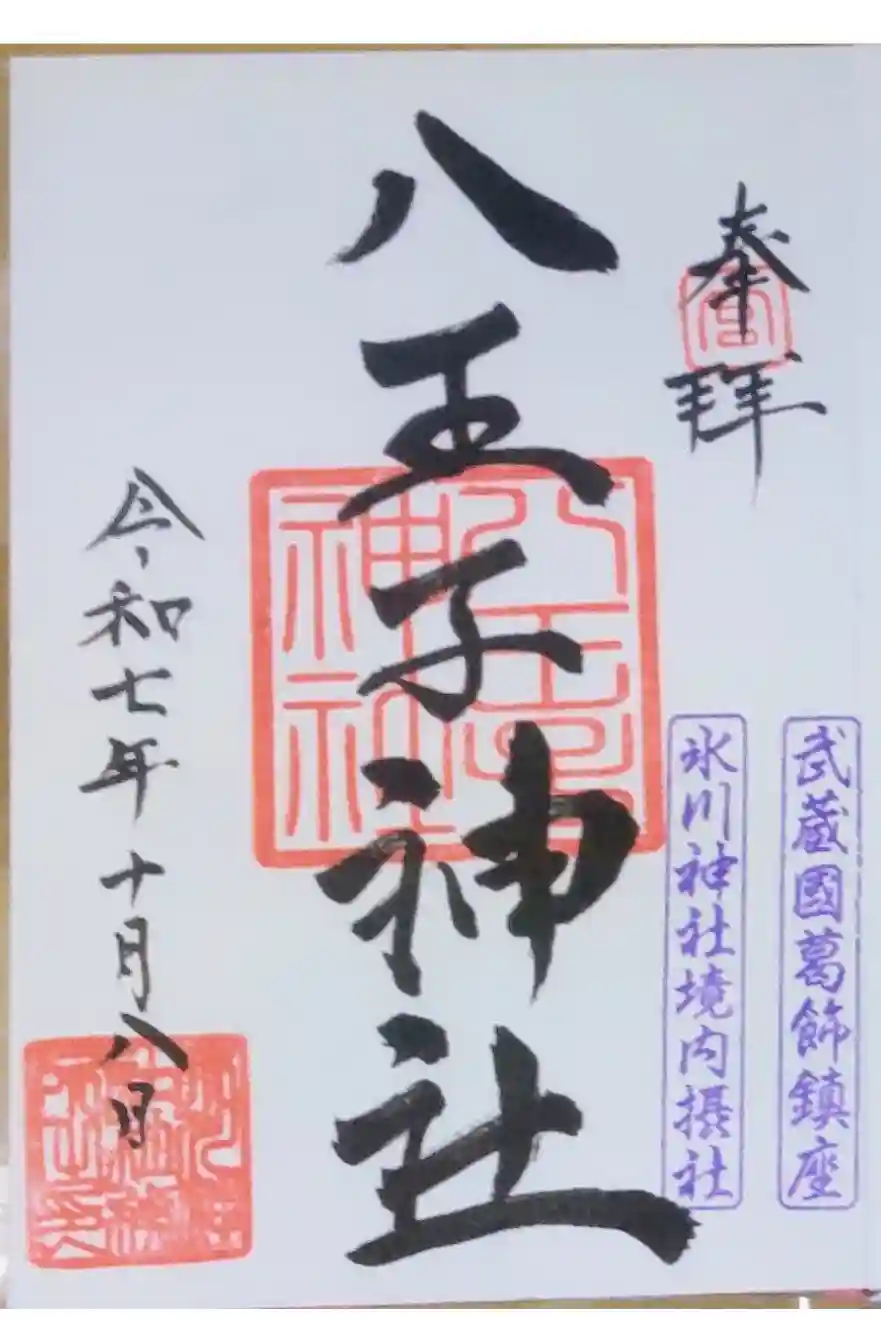 奉拝
武蔵國葛飾鎮座
氷川神社境内摂社
八王子神社
八王子神社
令和七年十月八日